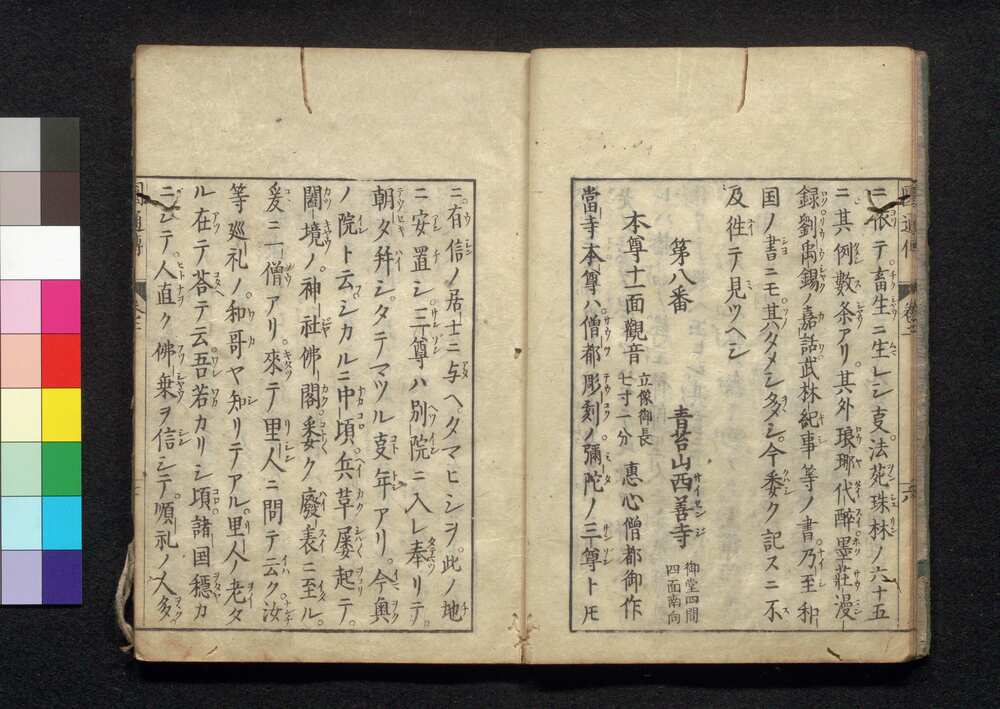 ニ依テ畜生ニ生レシ支法苑珠林ノ六十五
ニ其例數条アリ。其外琅瑘代醉墨莊漫
録劉禹錫ノ嘉話武林紀事等ノ書乃至和
国ノ書ニモ其タメシ多シ。今委ク記スニ不
及徃テ見ツヘシ
第八番 青苔山西善寺 御堂四間四面南向
本尊十一面觀音 立像御長七寸二分 惠心僧都御作
當寺本尊ハ僧都彫刻ノ彌陀ノ三尊ト𪜈
ニ有信ノ居士ニ与ヘタマヒシヲ。此ノ地
ニ安置シ三尊ハ別院ニ入レ奉リテ。
朝夕拜シタテマツル支年アリ。今奧
ノ院ト云シカルニ中頃。兵革屢起テ。
闔境ノ神社佛閣委ク廢衰ニ至ル。
爰ニ一僧アリ。來テ里人ニ問テ云ク汝
等巡礼ノ和哥ヤ知リテアル。里人ノ老タ
ル在テ荅テ云吾若カリシ頃諸国穩カ
ニシテ。人直ク佛乗ヲ信シテ順礼ノ人多